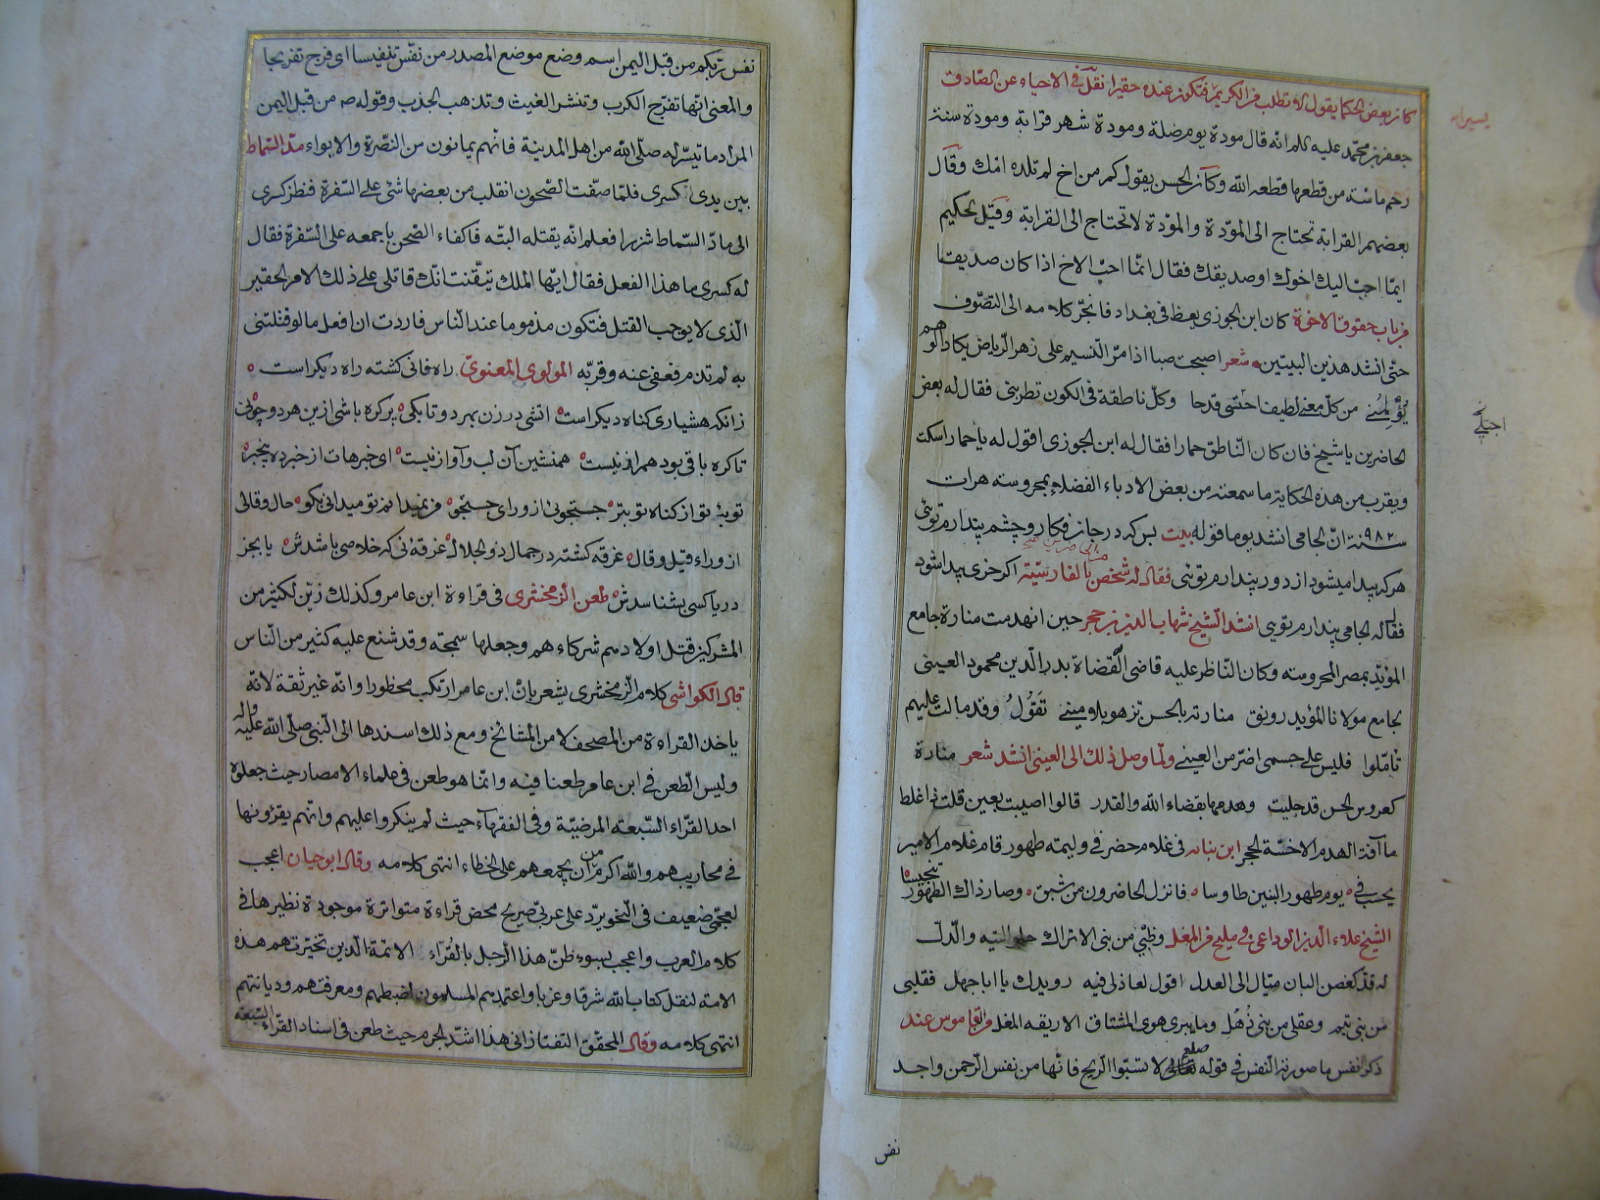 كان بعض الحكماء يقول لا تطلب من الكريم فتكون عنده حقيرا نقل في الاحياء عن الصادق
جعفر بن محمد عليه السلام انه قال مودة يوم صلة ومودة شهر قرابة ومودة سنة
رحم ماسة من قطعها قطعه الله وكان الحسن يقول كم من اخ لم تلده امك وقال
بعضهم القرابة تحتاج الى المودة والمودة لا تحتاج الى القرابة وقيل لحكيم
ايما احب اليك اخوك او صديقك فقال انما احب الاخ اذا كان صديقا
من باب حقوق الاخوة كان ابن الجوزي يعظ في بغداد فانجر كلامه الى التصوف
حتى انشد هذين البيتين شعر اصبحت صبا اذا مر النسيم على زهر الرياض يكاد الوهم
يؤلمني من كل معنى لطيف احتسى قدحا وكل ناطقة في الكون تطربني فقال له بعض
الحاضرين يا شيخ فان كان الناطق حمارا فقال له ابن الجوزي اقول له يا حمار اسكت
ويقرب من هذه الحكاية ما سمعته من بعض الادباء الفضلاء بمحروسة هرات
سنة ٩٨٢ ان الجامي انشد يوما قوله بيت بس كه در جان فكار و چشم بيدارم توئى
هر كه پيدا ميشود از دور پندارم توئى فقال له شخص بالفارسية اكر خرى پيدا شود
فقال له الجامي پندارم توئى انشد الشيخ شهاب الدين بن حجر حين انهدمت منارة جامع
المؤيد بمصر المحروسة وكان الناظر عليه قاضى القضاة بدر الدين محمود العينى
لجامع مولانا المؤيد رونق منارته بالحسن تزهو بلا ميني تقول وقد مالت عليهم
تأملوا فليس على جسمى اضر من العيني ولما وصل ذلك الى العينى انشد شعر منارة
كعروس الحسن قد جليت وهدمها بقضاء الله والقدر قالوا اصيبت بعين قلت ذا غلط
ما آفة الهدم الا خسة الحجر ابن نباته في غلام حضر في وليمة طهور قام غلام الامير
يحسب في يوم طهور البنين طاوسا فانزل الحاضرون من شبق وصار ذاك الطهور تنجيسا
الشيخ علاء الدين الوداعى في مليح من المغل وظبي من بنى الاتراك حلو التيه والدل
له قد كغصن البان ميال الى العدل اقول لعاذلى فيه رويدك يا ابا جهل فقلبى
من بنى تيم وعقلى من بنى ذهل وما يبرى هوى المشتاق الا ريقه المغلى من القاموس عند
ذكر النفس ما صورته النفس في قوله صلعم لا تسبوا الريح فانها من نفس الرحمن واجد
نفس
نفس ربكم من قبل اليمن اسم وضع موضع المصدر من نفس تنفيسا اى فرج تفريجا
والمعنى انها تفرج الكرب وتنشر الغيث وتذهب الجذب وقوله ص من قبل اليمن
المراد ما تيسر له صلى الله من اهل المدينة فانهم يمانون من النصرة والايواء مد السماط
بين يدى كسرى فلما صفت الصحون انقلب من بعضها شئ على السفرة فنظر كسرى
الى ماد السماط شزرا فعلم انه يقتله البته فاكفاء الصحن باجمعه على السفرة فقال
له كسرى ما هذا الفعل فقال ايها الملك تيقنت انك قاتلى على ذلك الامر الحقير
الذى لا يوجب القتل فتكون مذموما عند الناس فاردت ان افعل ما لو قتلتنى
به لم تذم فعفى عنه وقربه المولوى المعنوى راه فانى كشته راه ديكر است
زانكه هشيارى كناه ديكر است اتشى در زن بهر دو تا بكى پر كره باشى ازين هر دو چونى
تا كره با نى بود همراز نيست همنشين آن لب و آواز نيست اى خبرهات از خبرده بيخبر
توبهٔ تو از كناه تو بتر جستجوئى از وراى جستجو من نميدانم تو ميدانى بكو حال و قالى
از وراء قيل و قال غرقه كشته در جمال ذو الجلال غرقهٔ نى كه خلاصى باشدش يا بجز
دريا كسى بشناسدش طعن الزمخشرى فى قراءة ابن عامر وكذلك زين لكثير من
المشركين قتل اولادهم شركاءهم وجعلها سمجة وقد شنع عليه كثير من الناس
قال الكواشى كلام الزمخشرى يشعر بان ابن عامر ارتكب محظورا وانه غير ثقة لانه
ياخذ القراءة من المصحف لا من المشائخ ومع ذلك اسندها الى النبى صلى الله عليه واله
وليس الطعن فى ابن عامر طعنا فيه وانما هو طعن فى علماء الامصار حيث جعلوه
احد القراء السبعة المرضية وفى الفقهآء حيث لم ينكروا عليهم وانهم يقرؤنها
فى محاريبهم والله اكرم من ان يجمعهم على الخطاء انتهى كلامه وقال ابو حيان اعجب
لعجمى ضعيف فى النحو يرد على عربى صريح محض قراءة متواترة موجودة نظيرها فى
كلام العرب واعجب بسوء ظن هذا الرجل بالقراء الائمة الذين تخيرتهم هذه
الامة لنقل كتاب الله شرقا وغربا واعتمدهم المسلمون لضبطهم ومعرفتهم وديانتهم
انتهى كلامه وقال المحقق التفتازانى هذا اشد الجرم حيث طعن فى اسناد القراء السبعة